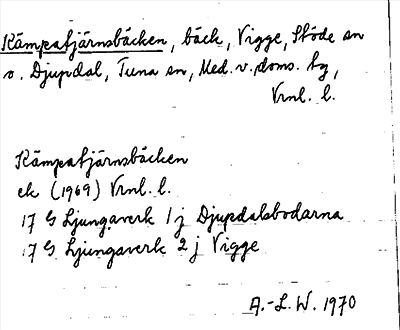 Kämpatjärnsbäcken, bäck, Vigge, Stöde sn
o. Djupdal, Tuna sn, Med. v. doms. hg,
Vrnl. l.
Kämpatjärnsbäcken
ek (1969) Vrnl. l.
17 G Ljungaverk 1 j Djupdalsbodarna
17 G Ljungaverk 2 j Vigge
A.-L. W. 1970